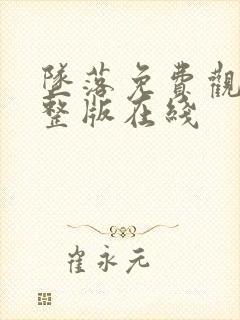 墜落免費觀
整版在綫
崔永元